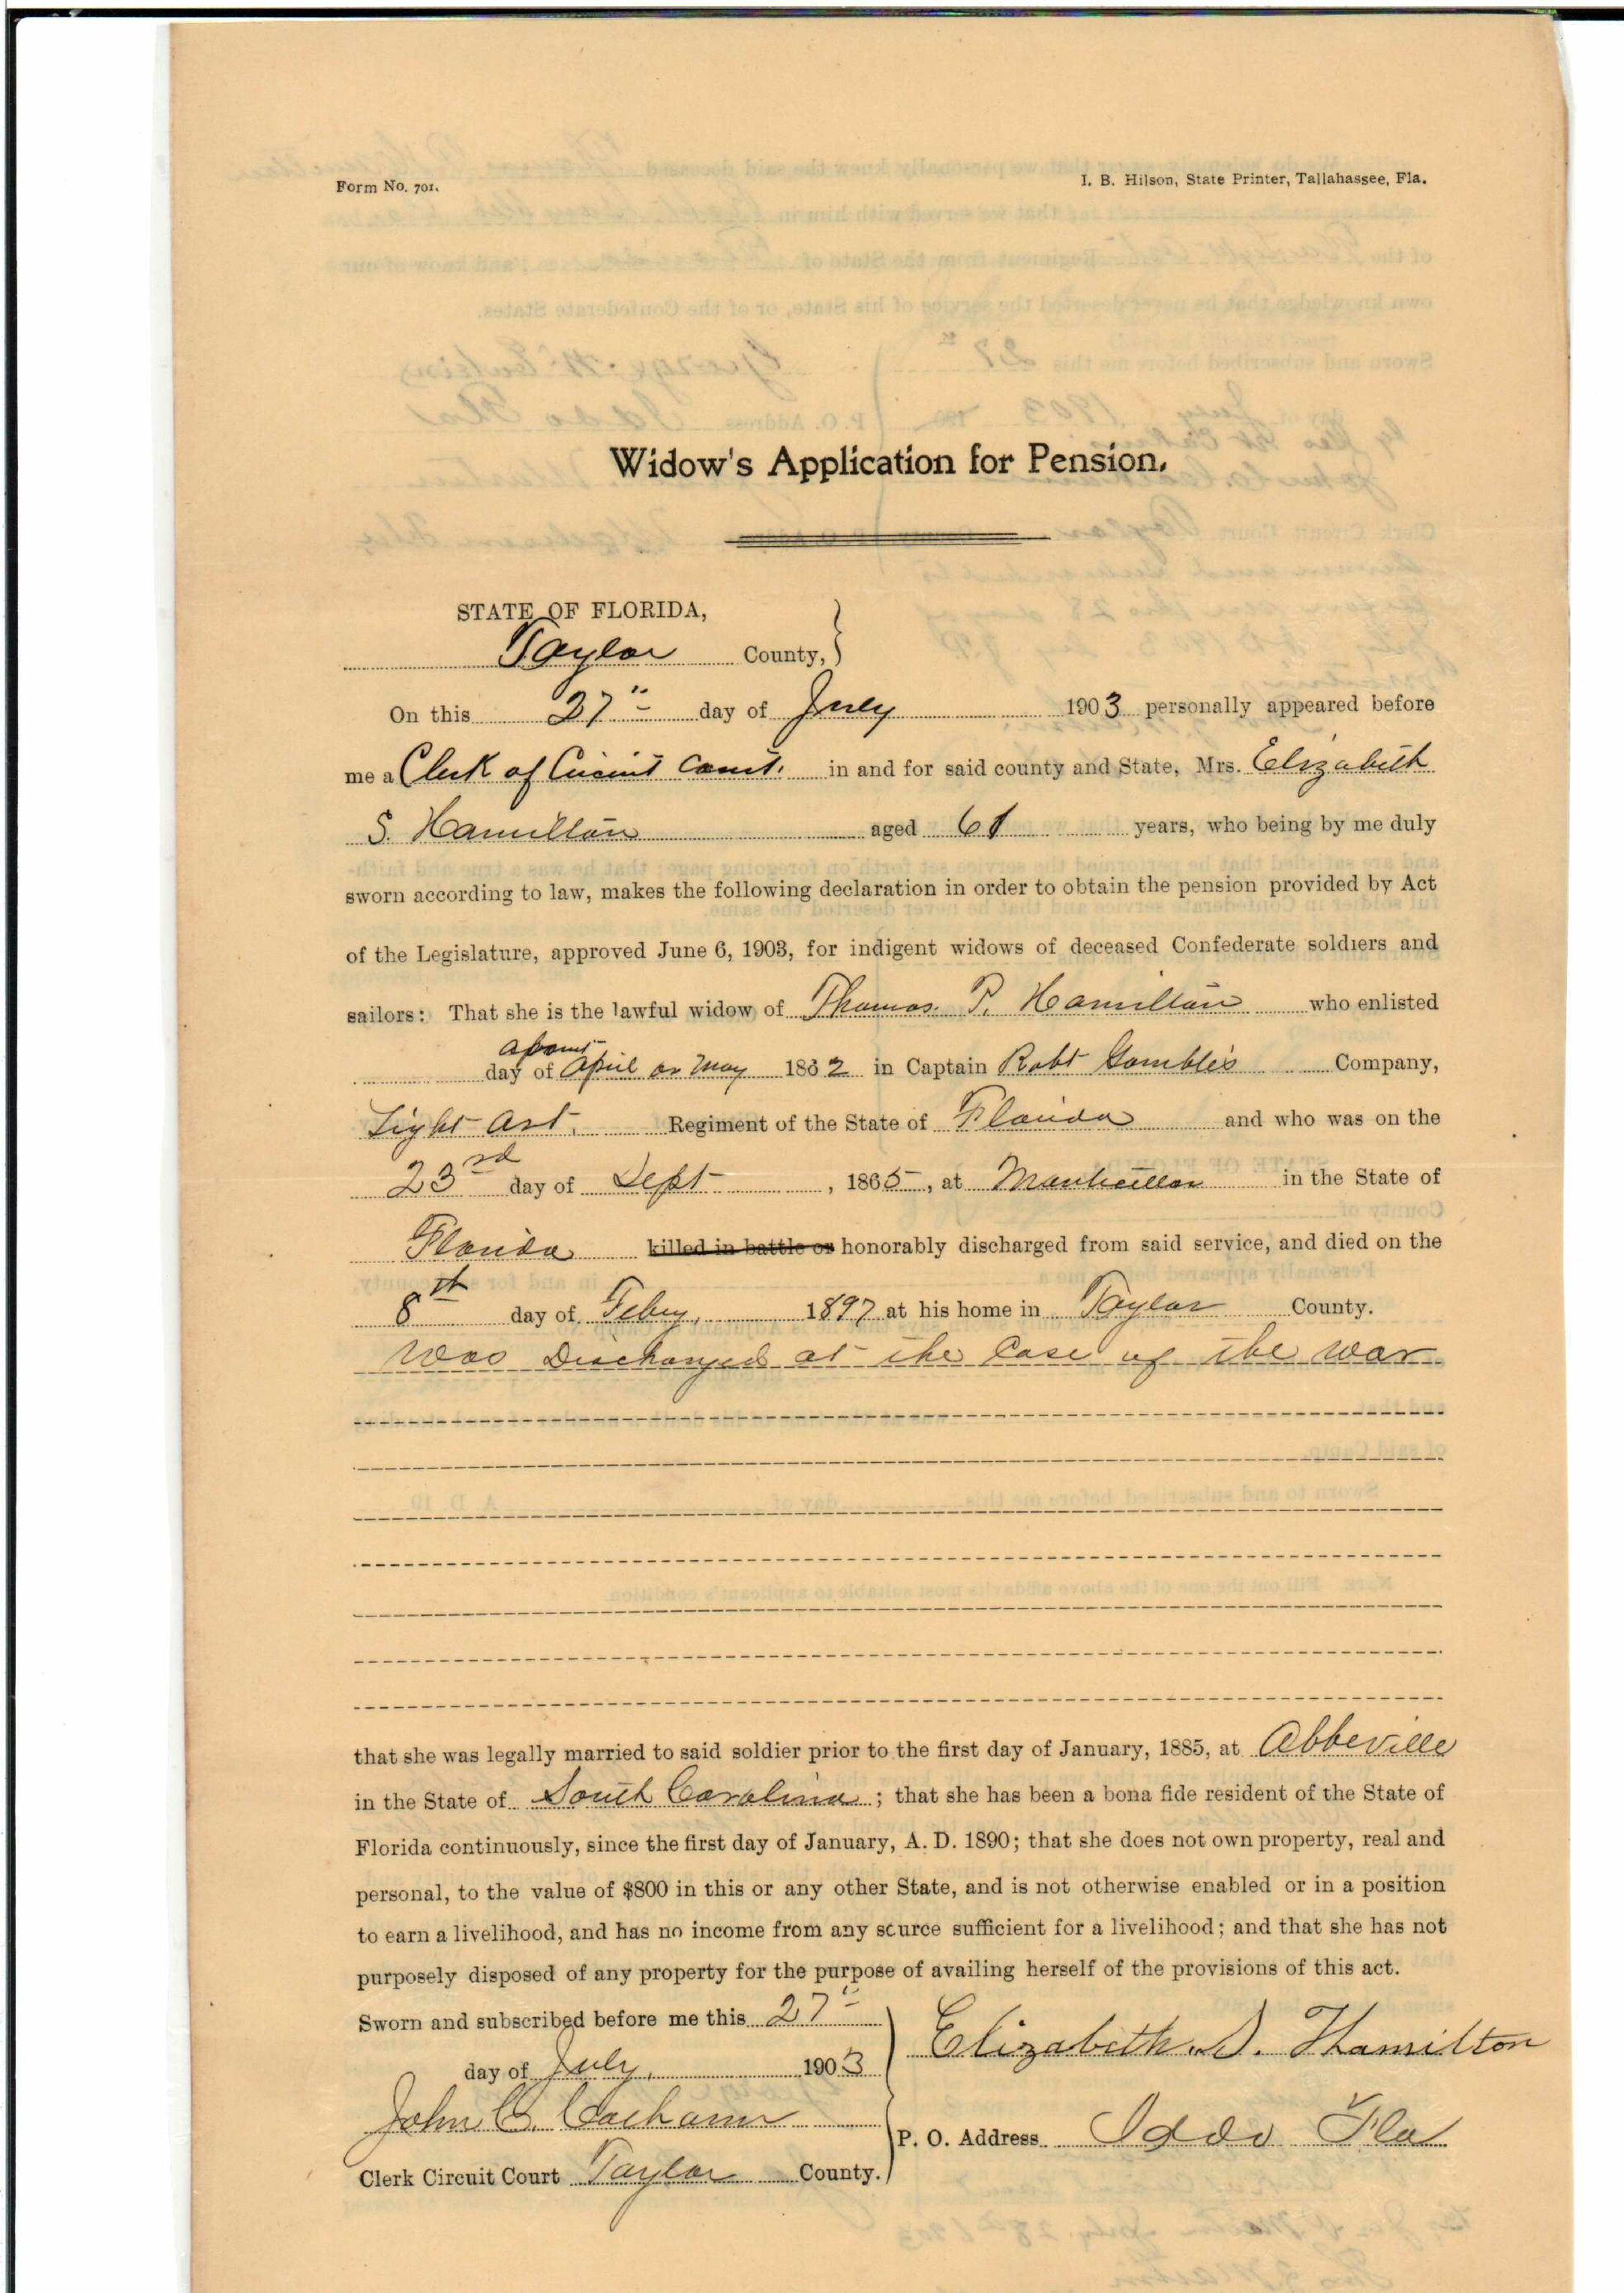 Form No. 701.
I. B. Hilson, State Printer, Tallahassee, Fla.
Widow's Application for Pension.
STATE OF FLORIDA,
Taylor County,
On this 27" day of July 1903 personally appeared before
me a Clerk of Circuit Court. in and for said county and State, Mrs. Elizabeth
S. Hamilton aged 61 years, who being by me duly
sworn according to law, makes the following declaration in order to obtain the pension provided by Act
of the Legislature, approved June 6, 1903, for indigent widows of deceased Confederate soldiers and
sailors: That she is the lawful widow of Thomas P. Hamilton who enlisted
about
day of April or May 1862 in Captain Robt Gamble's Company,
Light Art. Regiment of the State of Florida and who was on the
23rd day of Sept, 1865, at in the State of
Florida killed in battle or honorably discharged from said service, and died on the
8th day of Feby, 1897 at his home in Taylor County.
Was Discharged at the Close of the War
that she was legally married to said soldier prior to the first day of January, 1885, at Abbeville
in the State of South Carolina; that she has been a bona fide resident of the State of
Florida continuously, since the first day of January, A. D. 1890; that she does not own property, real and
personal, to the value of $800 in this or any other State, and is not otherwise enabled or in a position
to earn a livelihood, and has no income from any source sufficient for a livelihood; and that she has not
purposely disposed of any property for the purpose of availing herself of the provisions of this act.
Sworn and subscribed before me this 27"
day of July, 1903
Elizabeth. S. Hamilton
John C.
P. O. Address Iddo Fla
Clerk Circuit Court Taylor County.